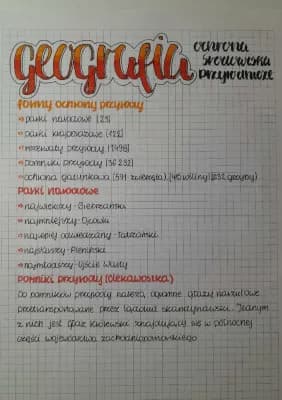 Geografia
ochrona
środowiska
przyrodniczego
formy ochrony przyrody
parki narodowe (23)
parki krajobrazowe (122)
rezerwaty przyrody (1496)
pomniki przyrody (36 232)
ochrona gatunkowa (591 zwierząt), (415 roślin) (232 grzyby)
Parki Narodowe
największy - Biebrzański
najmniejszy - Ojcowski
najlepiej odwiedzany - Tatrzański
najstarszy - Pieniński
najmłodszy - Ujście Warty
Pomniki przyrody (ciekawostka)
Do pomników przyrody należą, ogromne głazy narzutowe
przetransportowane przez lądolód skandynawski. Jednym
z nich jest głaz królewski znajdujący się w północnej
części województwa zachodniopomorskiego